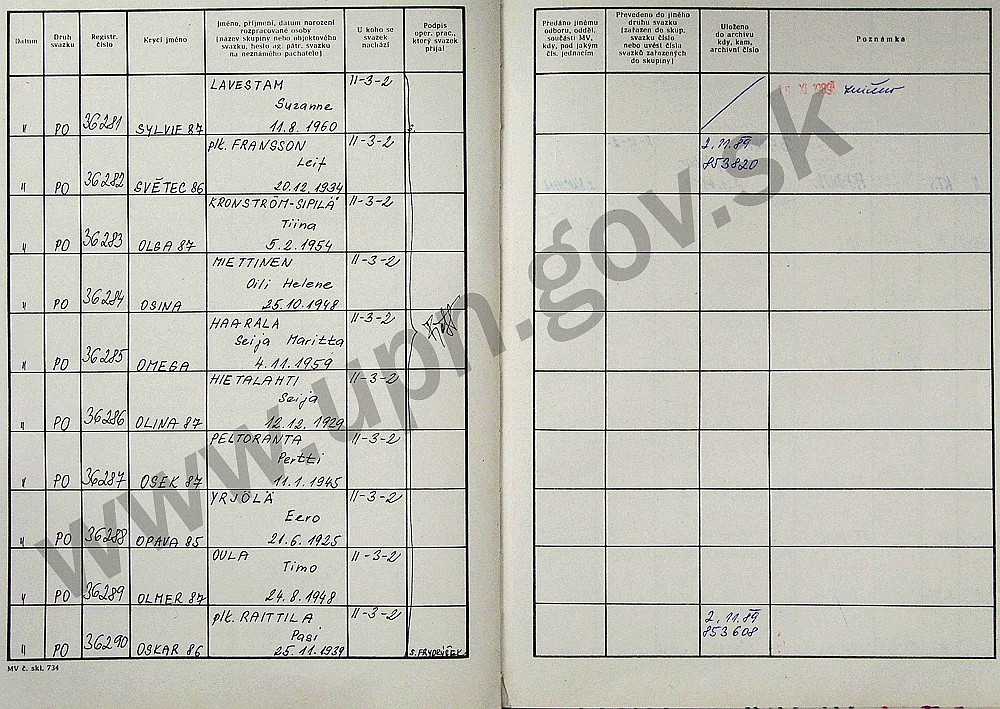 Datum
Druh
svazku
Registr.
číslo
Krycí jméno
Jméno, příjmení, datum narození
rozpracované osoby
(název skupiny nebo objektového
svazku, heslo ag. pátr. svazku
na neznámého pachatele)
U koho se
svazek
nachází
Podpis
oper. prac.,
který svazek
přijal
Předáno jinému
odboru, odděl.
součásti MV,
kdy, pod jakým
čís. jednacím
Převedeno do jiného
druhu svazku
(zařazen do skup.
svazku číslo
nebo uvést čísla
svazků zařazených
do skupiny)
Uloženo
do archivu
kdy, kam,
archivní číslo
Poznámka
LAVESTAM II-3-2
Suzanne
" PO 36281 SYLVIE 87 11.8.1960
plk. FRANSSON II-3-2 2.11.89
Leif 853820
" PO 36282 SVĚTEC 86 20.12.1934
KRONSTRÖM-SIPILÄ II-3-2
Tiina
" PO 36283 OLGA 87 5.2.1954
MIETTINEN II-3-2
Oili Helene
" PO 36284 OSINA 25.10.1948
HAARALA II-3-2
Seija Maritta
" PO 36285 OMEGA 4.11.1959
HIETALAHTI II-3-2
Seija
" PO 36286 OLINA 87 12.12.1929
PELTORANTA II-3-2
Pertti
" PO 36287 OSEK 87 11.1.1945
YRJÖLÄ II-3-2
Eero
" PO 36288 OPAVA 85 21.6.1925
OULA II-3-2
Timo
" PO 36289 OLMER 87 24.8.1948
plk. RAITTILA II-3-2 2.11.89
Pasi 853608
" PO 36290 OSKAR 86 25.11.1939 S. FRYDRÝŠEK
MV č. skl. 734
www.upn.gov.sk